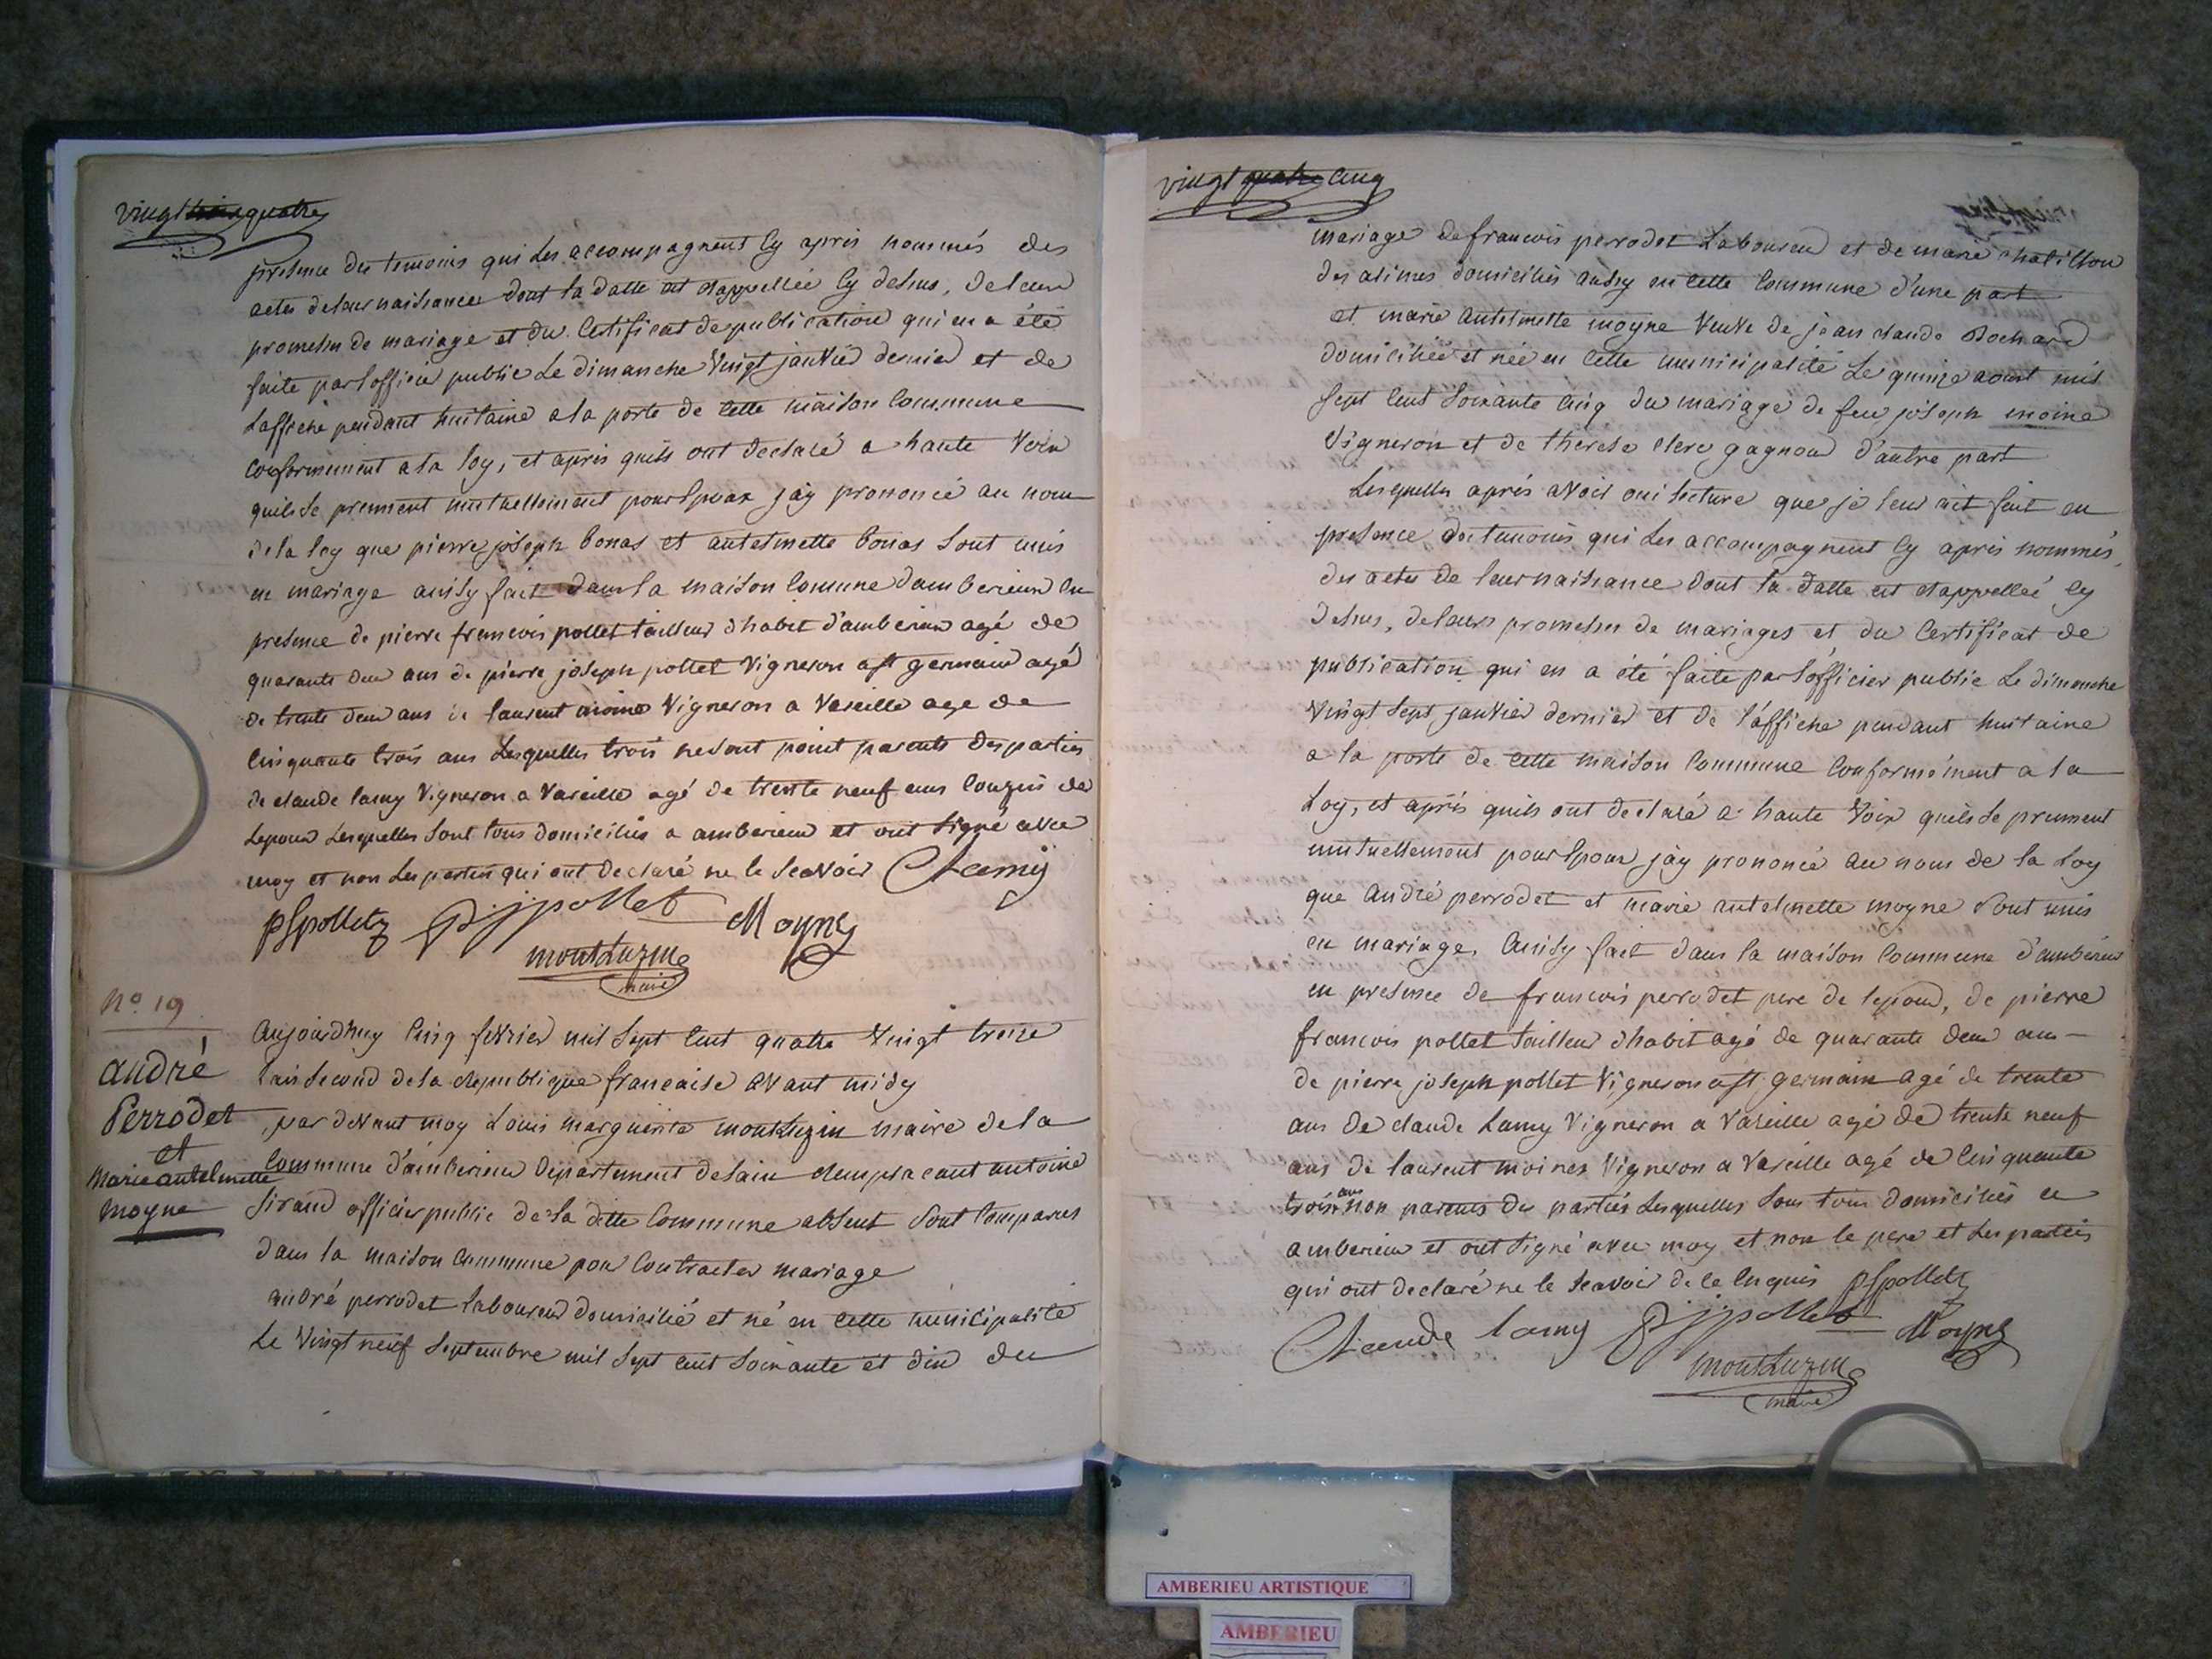 vingt trois quatre
presence des temoins qui les accompagnent cy après nommés des
actes de leur naissance dont la datte est rappellée cy dessus, de leur
promesse de mariage et du certificat de publication qui en a été
faite par l'officier public le dimanche vingt janvier dernier et de
l'affiche pendant huitaine a la porte de cette maison commune
conformement a la loy, et après quils ont declaré a haute voix
quils se prennent mutuellement pour Epoux jay prononcé au nom
de la loy que pierre joseph bonas et antelmette bonas sont unis
en mariage ainsy fait dans la maison comune d'amberieux en
presence de pierre francois pollet tailleur d'habit d'amberieux agé de
quarante deux ans de pierre joseph pollet vigneron a st germain agé
de trente deux ans de laurent moine vigneron a Vareille age de
cinquante trois ans lesquelles trois ne sont point parents des parties
de claude lamy vigneron a Vareille agé de trente neuf ans couzin de
lepoux lesquelles sont tous domiciliés a amberieux et ont signé avec
moy et non les parties qui ont declaré ne le scavoir C lamy
pfpollet pjpollet Moyne
montluzin
maire
No. 19
andré
Perrodet
et
Marie antelmette
moyne
aujourdhuy cinq fevrier mil sept cent quatre vingt treize
l'an second de la republique francaise avant midy
par devant moy Louis marguerite montluzin maire de la
commune d'amberieux departement de lain remplacant antoine
sirand officier public de la ditte commune absent sont comparus
dans la maison commune pour contracter mariage
andré perrodet laboureur domicilié et né en cette municipalité
le vingt neuf septembre mil sept cent soixante et dix du
vingt quatre cinq
mariage de francois perrodet Laboureur et de marie chatillon
domiciliés aussy en cette commune d'une part
et marie antelmette moyne veuve de jean claude Bochard
domiciliée et née en cette municipalité le quinze aoust mil
sept cent soixante cinq du mariage de feu joseph moine
vigneron et de therese clerc gagnou d'autre part
Lesquelles après avoir oui lecture que je leur ait fait en
presence des temoins qui les accompagnent cy après nommés
des actes de leur naissance dont la datte est rappellée cy
dessus, de leurs promesses de mariages et du certificat de
publication qui en a été faite par l'officier public le dimanche
vingt sept janvier dernier et de l'affiche pendant huitaine
a la porte de cette maison commune conformément a la
Loy, et après quils ont declaré a haute voix quils se prennent
mutuellement pour Epoux jay prononcé au nom de la Loy
que andré perrodet et marie antelmette moyne sont unis
en mariage, ainsy fait dans la maison commune d'amberieux
en presence de francois perrodet pere de lepoux, de pierre
francois pollet tailleur d'habit agé de quarante deux ans
de pierre joseph pollet vigneron a st germain agé de trente
ans de claude Lamy vigneron a Vareille agé de trente neuf
ans de laurent moines vigneron a Vareille agé de cinquante
trois ans non parents des parties lesquelles sont tous domiciliés a
amberieux et ont signé avec moy et non le pere et les parties
qui ont declaré ne le scavoir de ce enquis pfpollet
Claude lamy pjpollet Moyne
montluzin
maire
AMBERIEU ARTISTIQUE
AMBERIEU